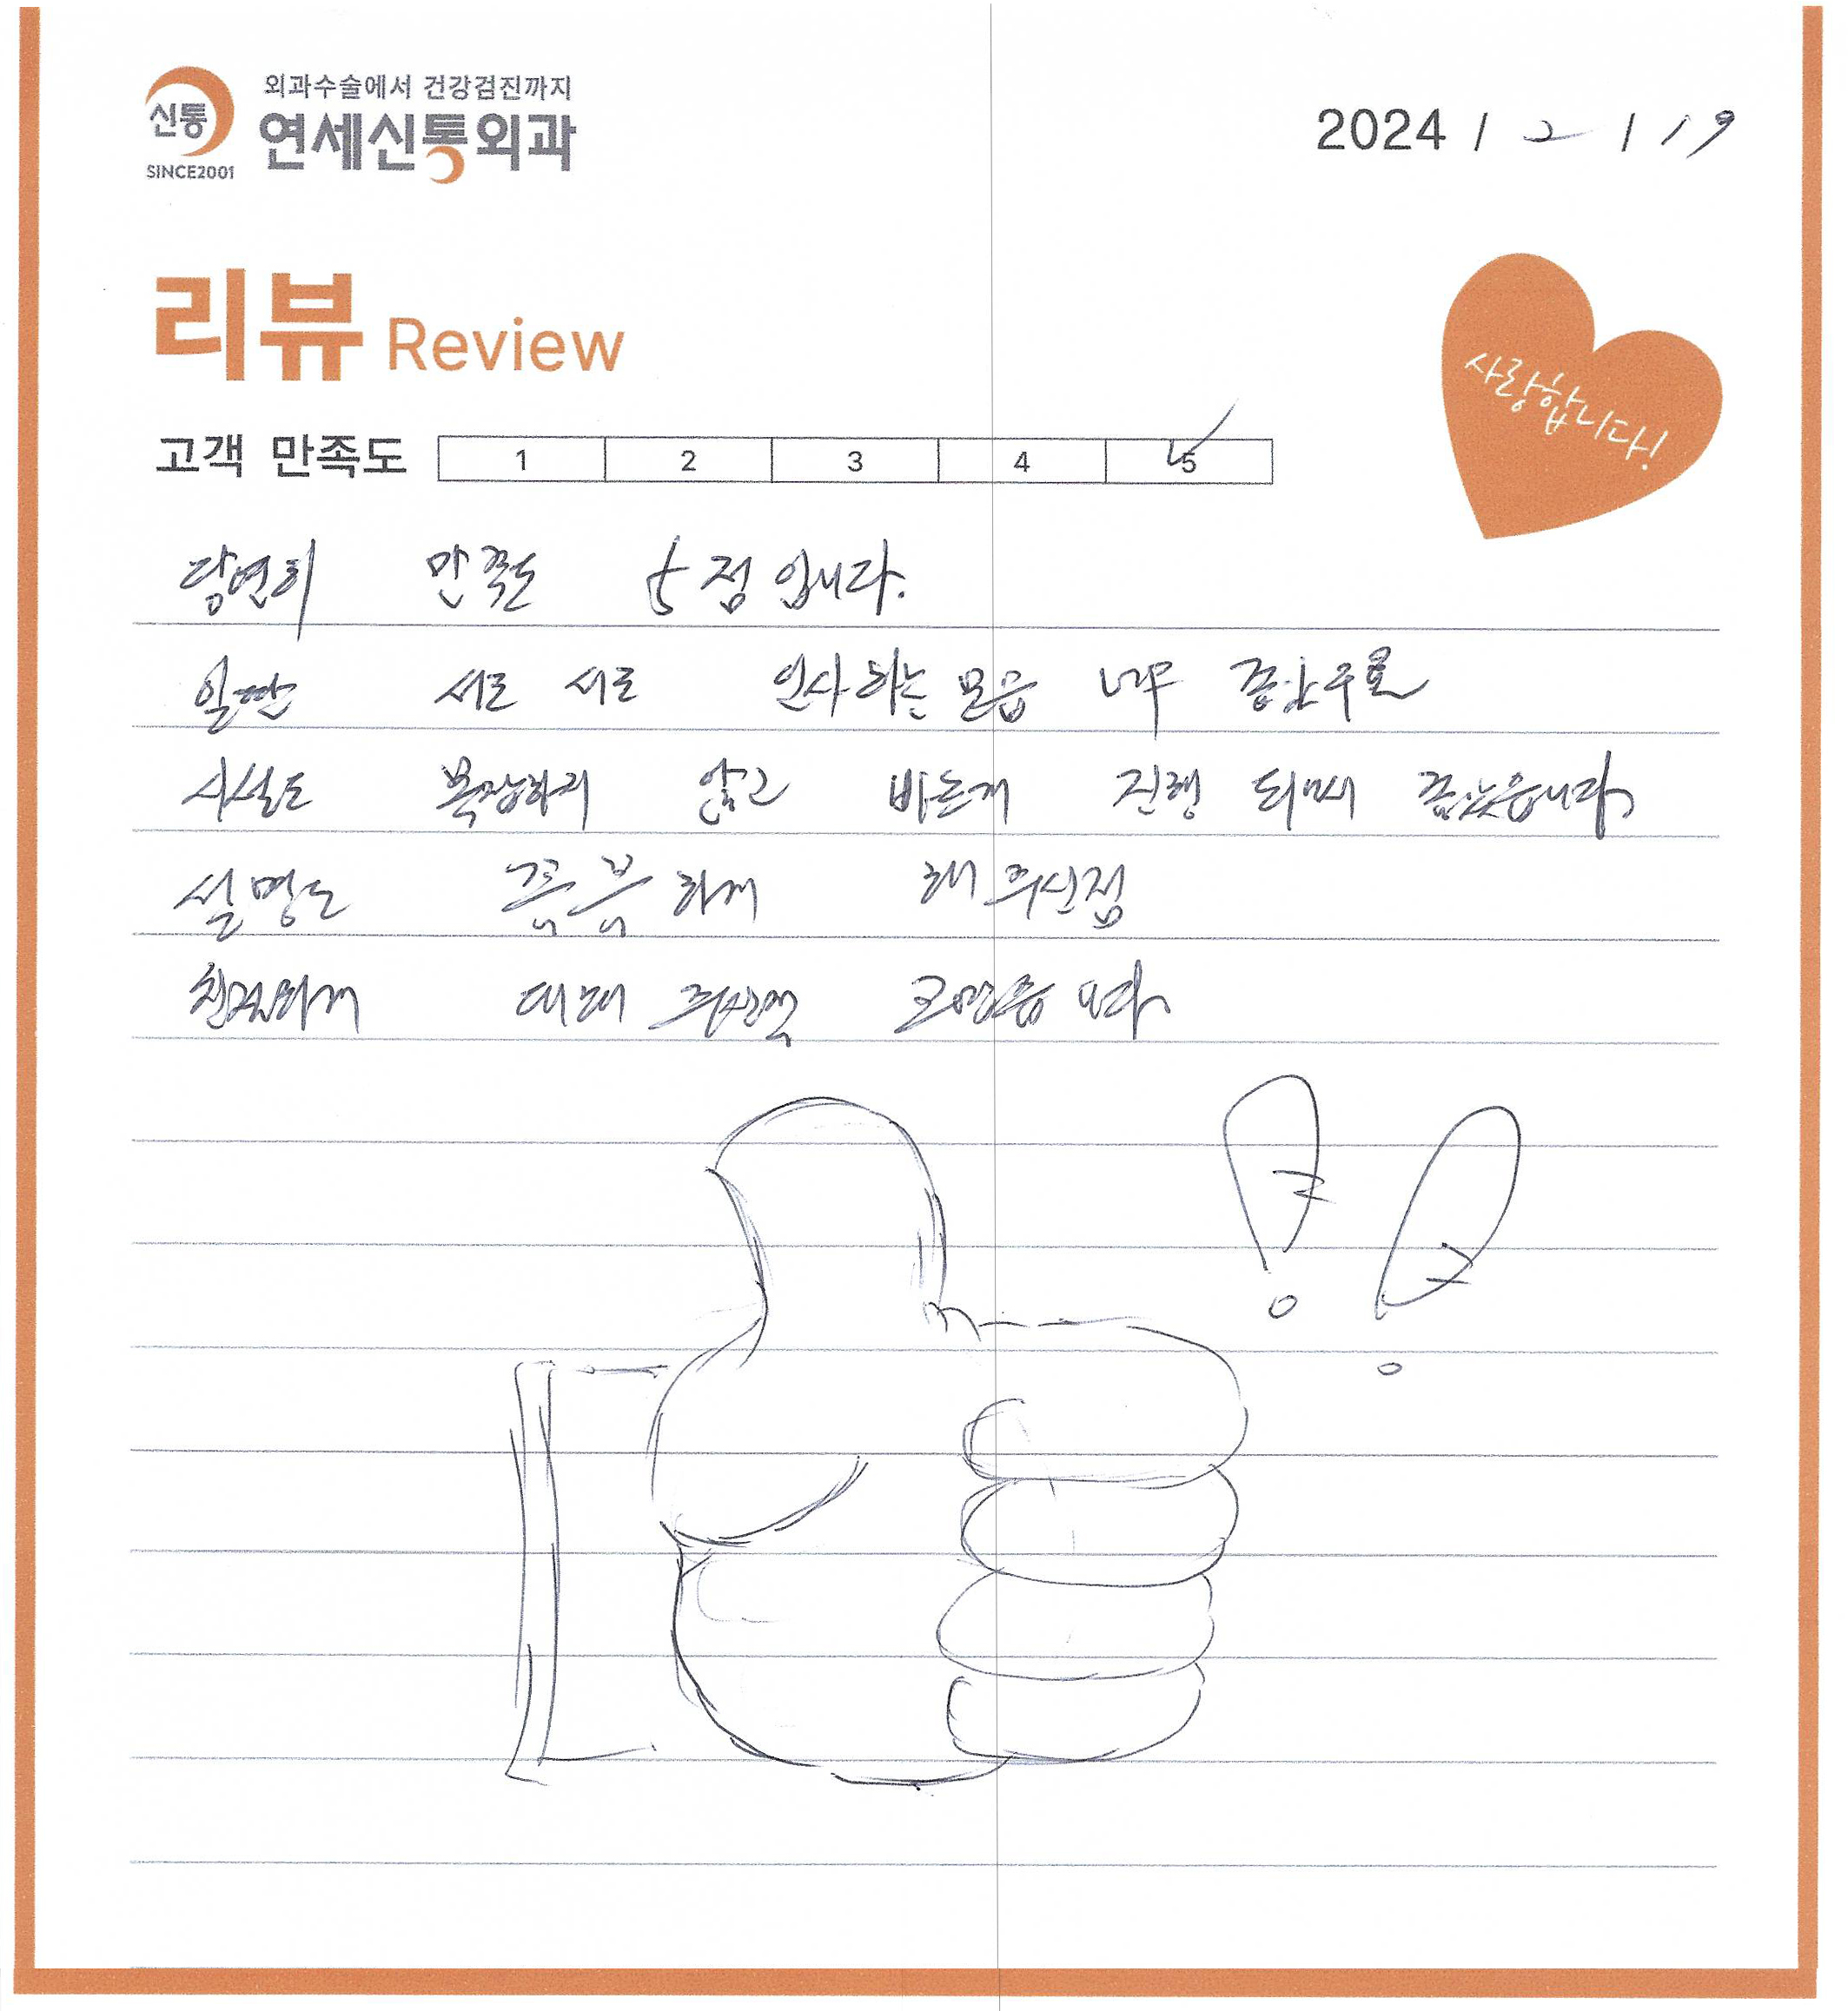 신통
SINCE2001
외과수술에서 건강검진까지
연세신통외과
2024 / 2 / 19
리뷰 Review
사랑합니다!
고객 만족도 1 2 3 4 5
당연히 만족도 5점 입니다.
일딴 서로 서로 인사하는 모습 너무
시설도 복잡하지 않고 바르게 진행 되며 좋았습니다
설명도 하게 해 주신점
친절하게 대해 주신점